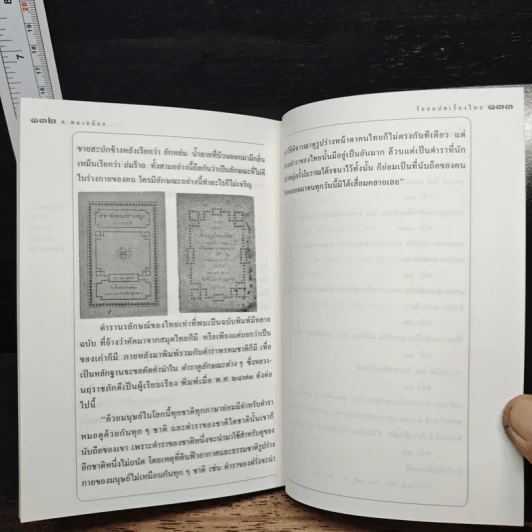 ๑๓๒ ส. พลายน้อย
ชายสะบักข้างหลังเรียกว่า ลักหล่ม น้ำลายที่บ้วนออกมามีกลิ่น
เหม็นเรียกว่า ถ่มร้าย ทั้งสามอย่างนี้ถือกันว่าเป็นลักษณะที่ไม่ดี
ในร่างกายของคน ใครมีลักษณะอย่างนี้ทำอะไรก็ไม่เจริญ
ตำรานรลักษณ์ของไทยเท่าที่พบเป็นฉบับพิมพ์มีหลาย
ฉบับ ที่อ้างว่าคัดมาจากสมุดไทยก็มี หรือเพียงแต่บอกว่าเป็น
ของเก่าก็มี ภายหลังมาพิมพ์รวมกับตำราพรหมชาติก็มี เพื่อ
เป็นหลักฐานจะขอคัดคำนำใน ตำราดูลักษณะต่าง ๆ ซึ่งหลวง-
นฤราชภักดีเป็นผู้เรียบเรียง พิมพ์เมื่อ พ.ศ. ๒๔๗๓ ดังต่อ
ไปนี้
"ด้วยมนุษย์ในโลกนี้ทุกชาติทุกภาษาย่อมมีตำหรับตำรา
หมอดูด้วยกันทุก ๆ ชาติ และตำราของชาติใดชาตินั้นเขาก็
นับถือของเขา เพราะตำราของชาติหนึ่งจะนำมาใช้สำหรับดูของ
อีกชาติหนึ่งไม่ถนัด โดยเหตุที่ดินฟ้าอากาศและธรรมชาติรูปร่าง
กายของมนุษย์ไม่เหมือนกันทุก ๆ ชาติ เช่น ตำราของฝรั่งจะนำ
ร้อยแปดเรื่องไทย ๑๓๓
มาใช้พิจารณาดูรูปร่างหน้าตาคนไทยก็ไม่ตรงกันทีเดียว แต่
ตำราของไทยนั้นมีอยู่เป็นอันมาก ล้วนแต่เป็นตำราที่นัก
ปราชญ์ครั้งโบราณได้รจนาไว้ทั้งนั้น ก็ย่อมเป็นที่นับถือของคน
ไทยตลอดมาจนทุกวันนี้มิได้เสื่อมคลายเลย"